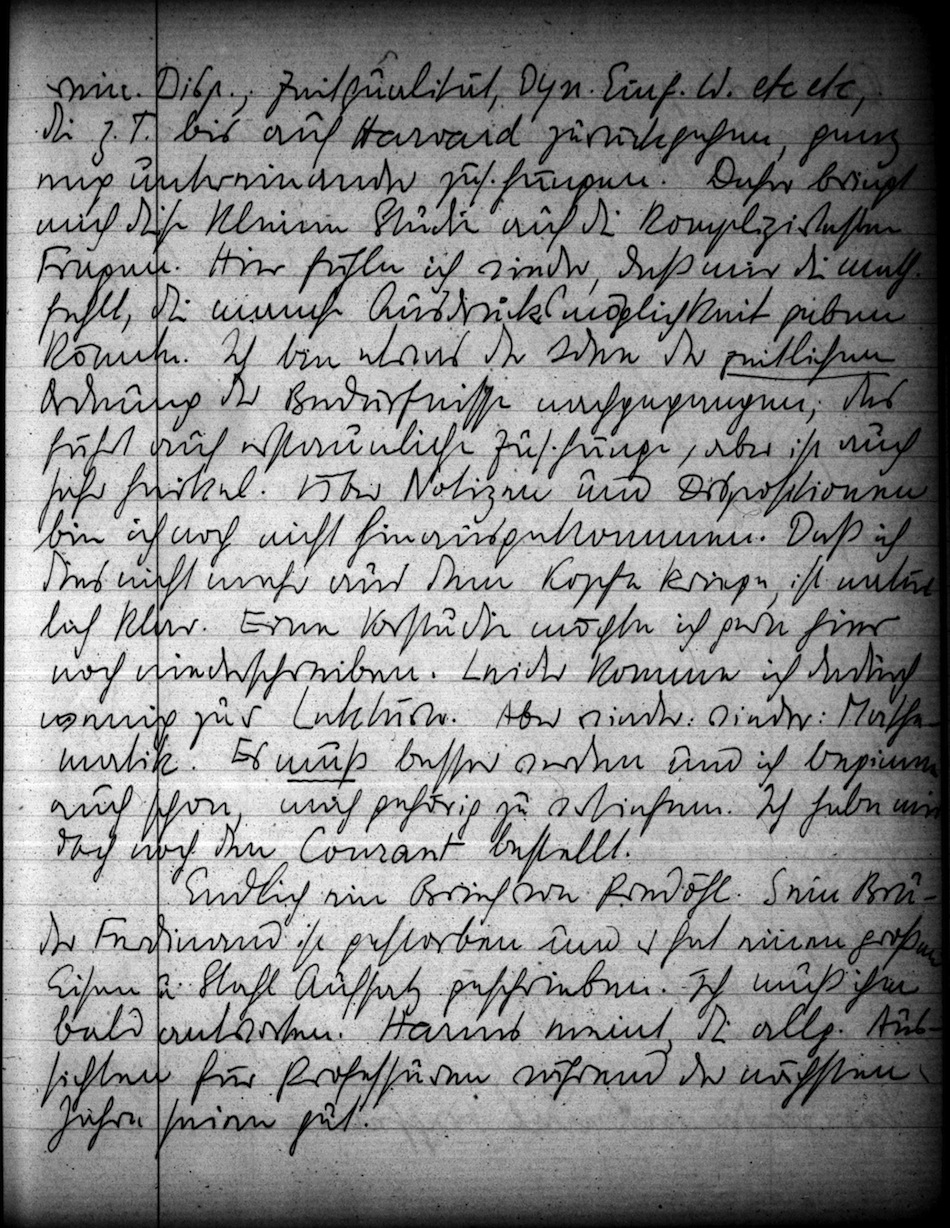 min. Disp., Zeitqualität, Dyn. Einf. W. etc etc,
die z. T. bis auf Harvard zurückgehen, ganz
eng untereinander zus.hängen. Daher bringt
mich diese kleine Studie auf die kompliziertesten
Fragen. Hier fühle ich wieder, daß mir die math.
fehlt, die manche Ausdrucksmöglichkeit geben
könnte. Ich bin etwas der Idee der zeitlichen
Ordnung der Bedürfnisse nachgegangen; das
führt auf erstaunliche Zus.hänge, aber ist auch
sehr heikel. Über Notizen und Dispositionen
bin ich noch nicht hinausgekommen. Daß ich
dies nicht mehr aus dem Kopfe kriege, ist natür
lich klar. Eine Vorstudie möchte ich gern hier
noch niederschreiben. Leider komme ich dadurch
wenig zur Lektüre. Aber wieder: wieder: Mathe
matik. Es muß besser werden und ich beginne
auch schon, mich gehörig zu
Ich habe mir
doch noch den Courant bestellt.
Endlich ein Brief von Predöhl. Sein Bru-
der Ferdinand ist gestorben und er hat einen großen
Eisen u. Stahl Aufsatz geschrieben. Ich muß ihm
bald antworten. Harms meint, die allg. Aus-
sichten für Professuren während der nächsten
Jahre seien gut.